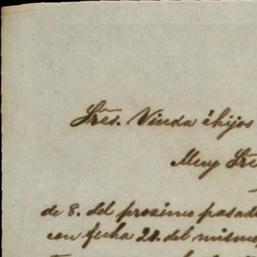 Sres. Viuda é hijos
Muy Sre
de 8. del proximo pasado
con fecha 21. del mismo,